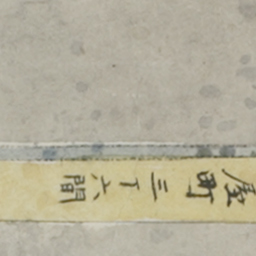 屋町三丁六間